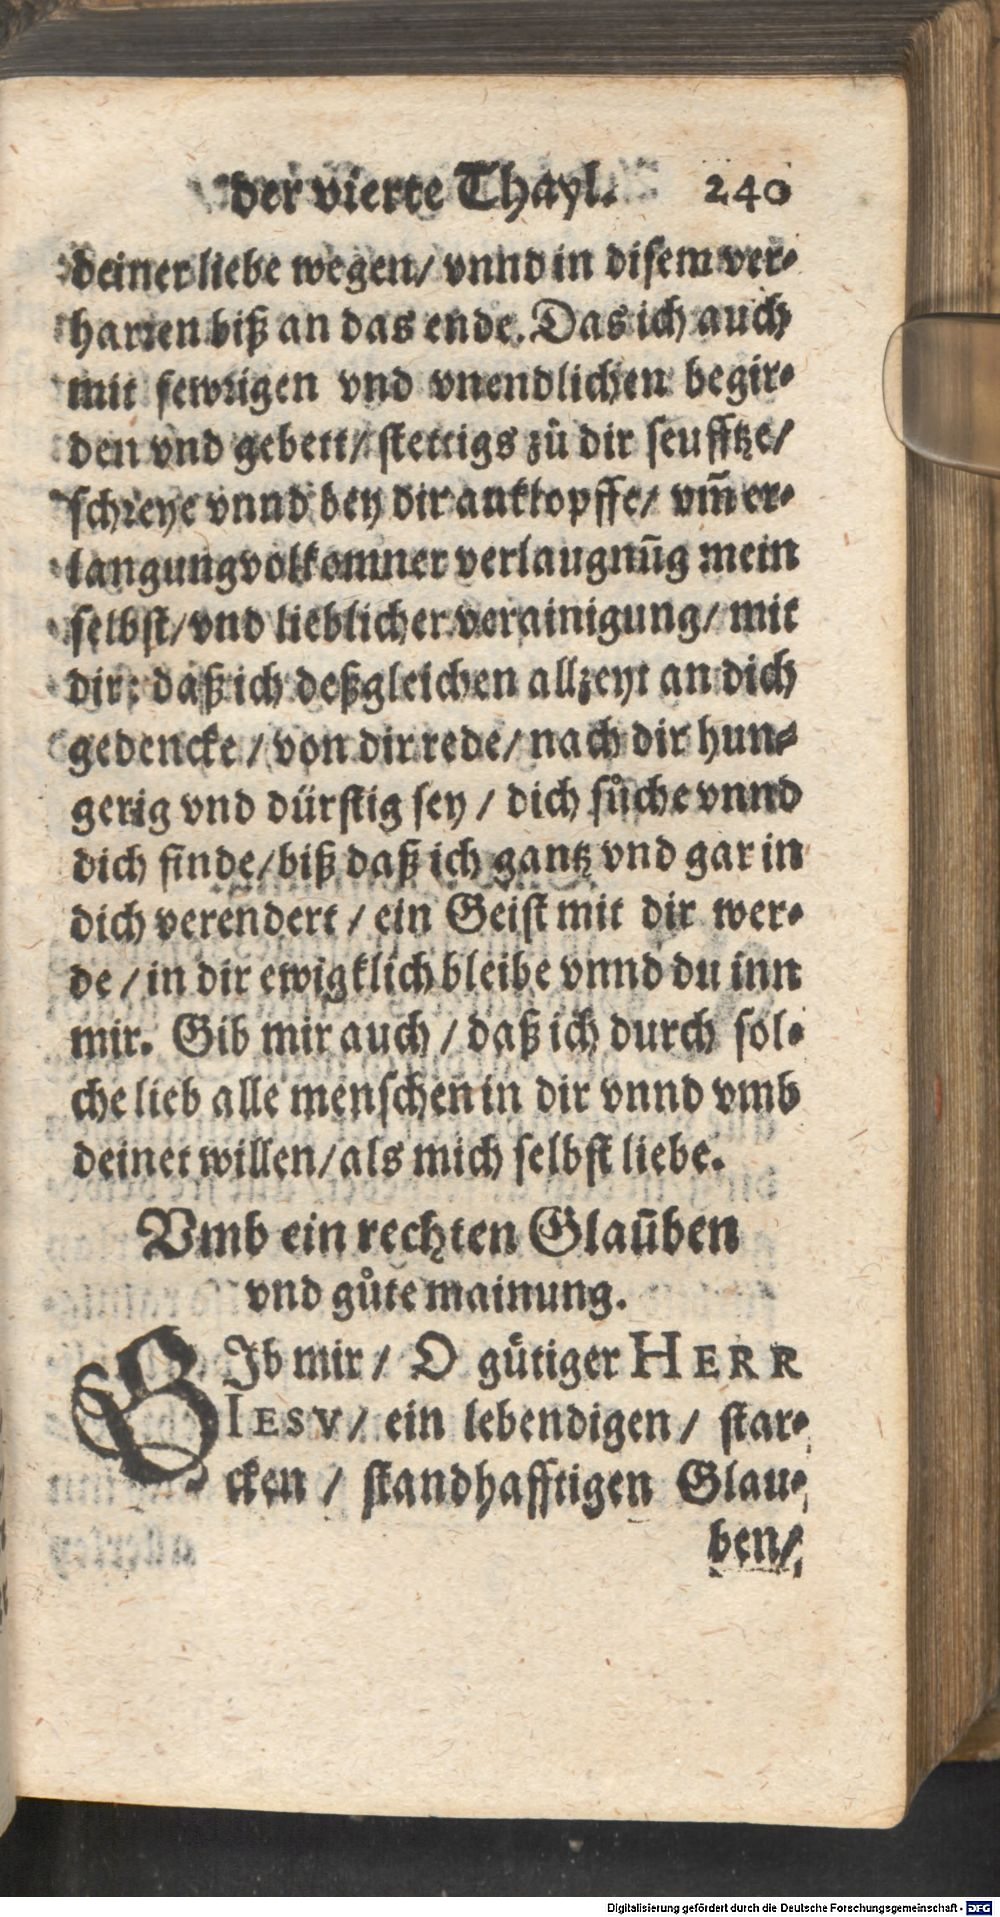 der vierte Thayl. 240
deiner liebe wegen/ vnnd in disem ver-
harren biß an das ende. Das ich auch
mit fewrigen vnd vnendlichen begir-
den vnd gebett/ stettigs zů dir seufftze/
schreye vnnd bey dir anklopffe/ vm̃ er-
langung volkomner verlaugnũg mein
selbst/ vnd lieblicher verainigung/ mit
dir: daß ich deßgleichen allzeyt an dich
gedencke/ von dir rede/ nach dir hun-
gerig vnd dürstig sey/ dich sůche vnnd
dich finde/ biß daß ich gantz vnd gar in
dich verendert/ ein Geist mit dir wer-
de/ in dir ewigklich bleibe vnnd du inn
mir. Gib mir auch/ daß ich durch sol-
che lieb alle menschen in dir vnnd vmb
deinet willen/ als mich selbst liebe.
Vmb ein rechten Glaũben
vnd gůte mainung.
GIb mir/ O gütiger HERR
IESV/ ein lebendigen/ star-
cken/ standhafftigen Glau-
ben/
Digitalisierung gefördert durch die Deutsche Forschungsgemeinschaft - DFG